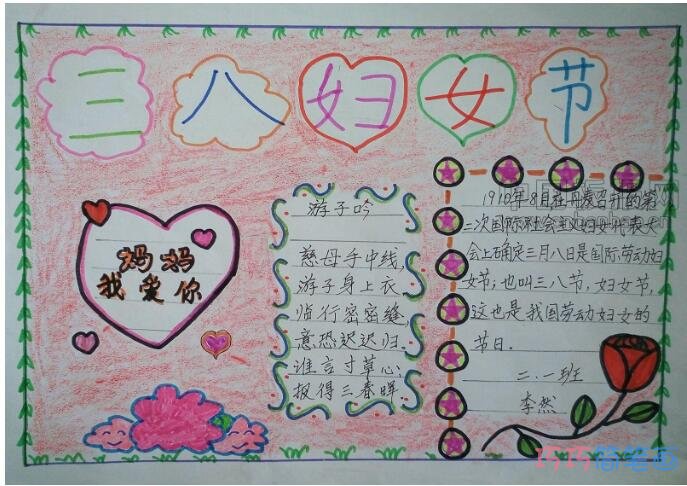 三八妇女节
妈妈
我爱你
游子吟
慈母手中线,
游子身上衣
临行密密缝,
意恐迟迟归.
谁言寸草心,
报得三春晖
1910年8月在丹麦召开的第
二次国际社会主义妇女代表大
会上确定三月八日是国际劳动妇
女节;也叫三八节,妇女节,
这也是我国劳动妇女的
节日.
二.一班
李然
巧巧简笔画